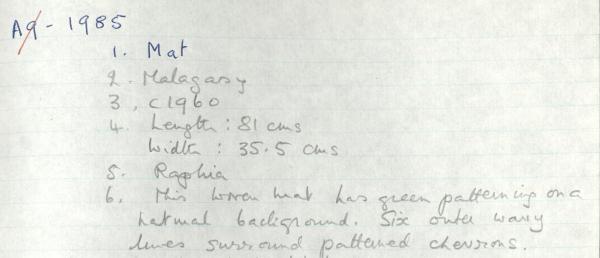 A9 - 1985
1. Mat
2. Malagasy
3. c1960
4. Length : 81 cms
Width : 35.5 cms
5. Raphia
6. This woven mat has green patterning on a
natural background. Six outer wavy
lines surround patterned chevrons.